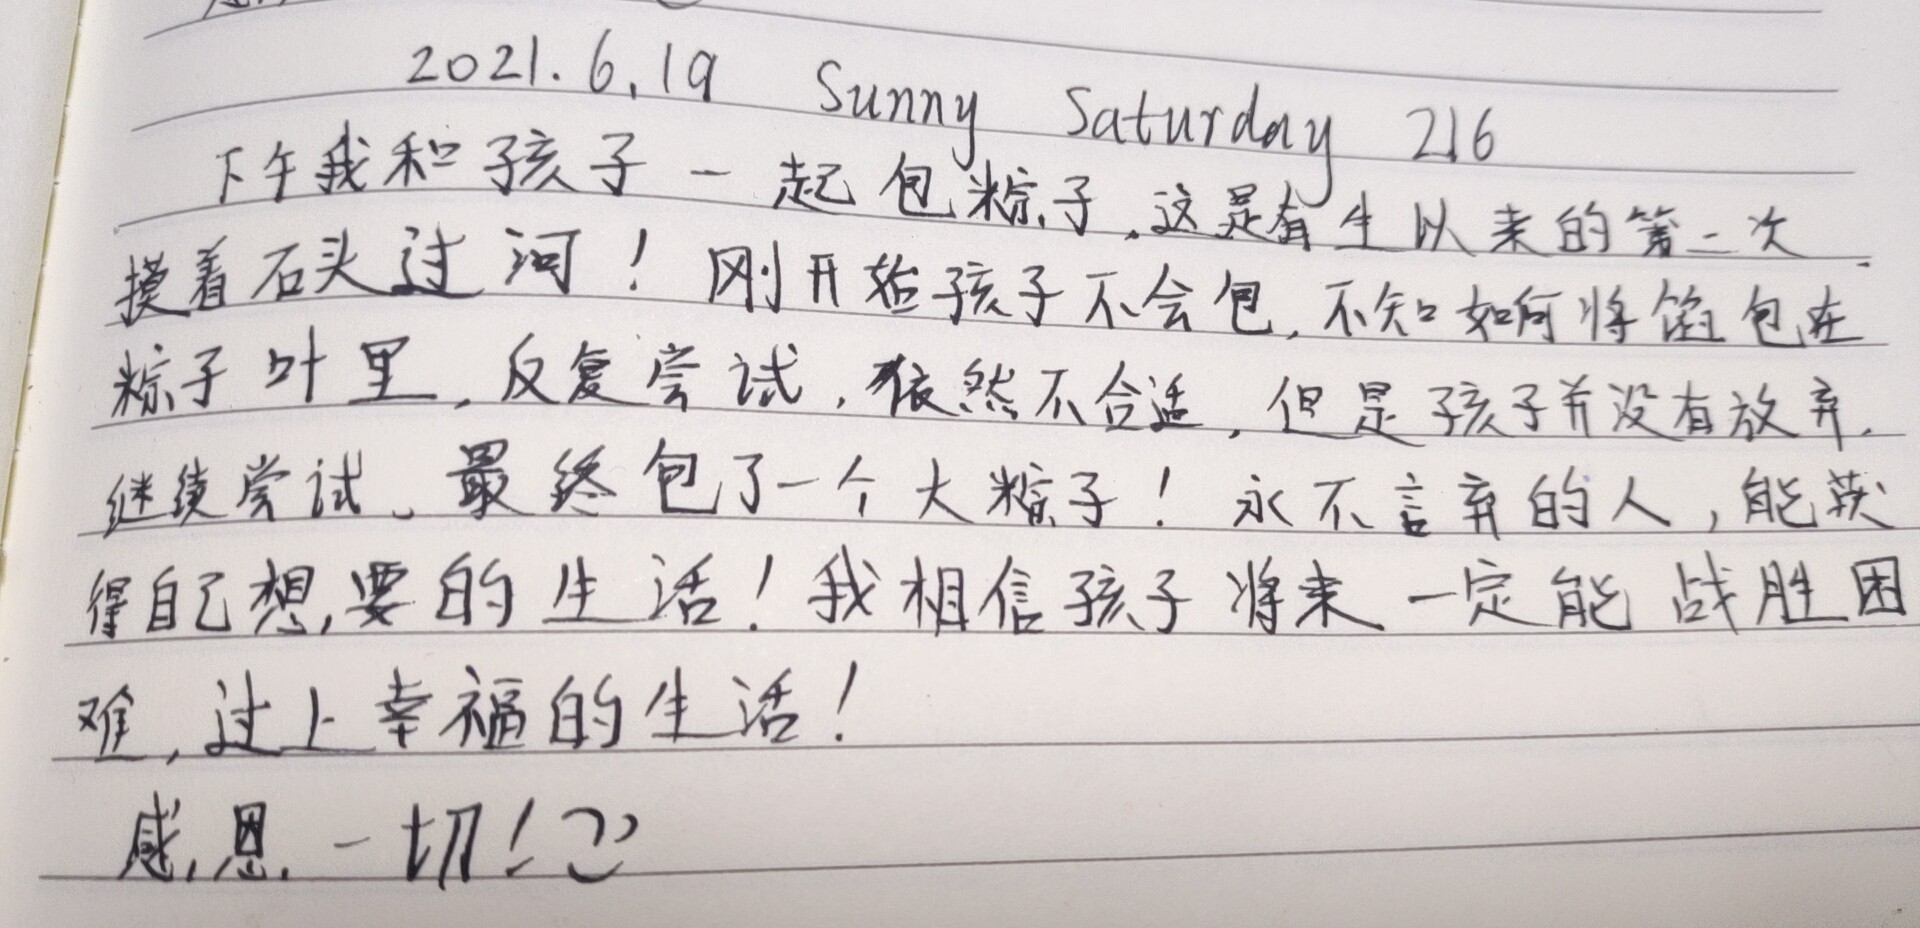 2021.6.19 Sunny Saturday 216
下午我和孩子一起包粽子,这是有生以来的第二次,
摸着石头过河!刚开始孩子不会包,不知如何将馅包在
粽子叶里,反复尝试,依然不合适,但是孩子并没有放弃,
继续尝试、最终包了一个大粽子!永不言弃的人,能获
得自己想要的生活!我相信孩子将来一定能战胜困
难,过上幸福的生活!
感恩一切!